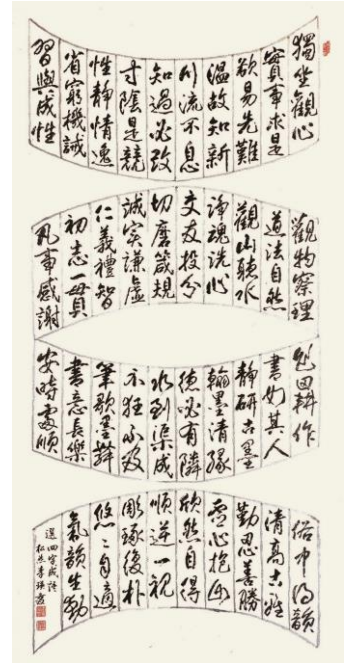 獨坐觀心
實事求是
欲易先難
溫故知新
川流不息
知過必改
寸陰是競
性靜情逸
省窮機誡
習與成性
觀物察理
道法自然
觀山聽水
淨魂洗心
交友投分
切磨箴規
誠實謙虛
仁義禮智
初志一貫
凡事感謝
耕作
書如其人
靜研古墨
翰墨清緣
德必有隣
水到渠成
不狂不及
筆歌墨舞
書意長樂
安時處順
俗中得韻
清高古雅
勤思善勝
虛心抱
欣然自得
順逆一視
雕琢復朴
悠々自適
氣韻生動
選四字成語